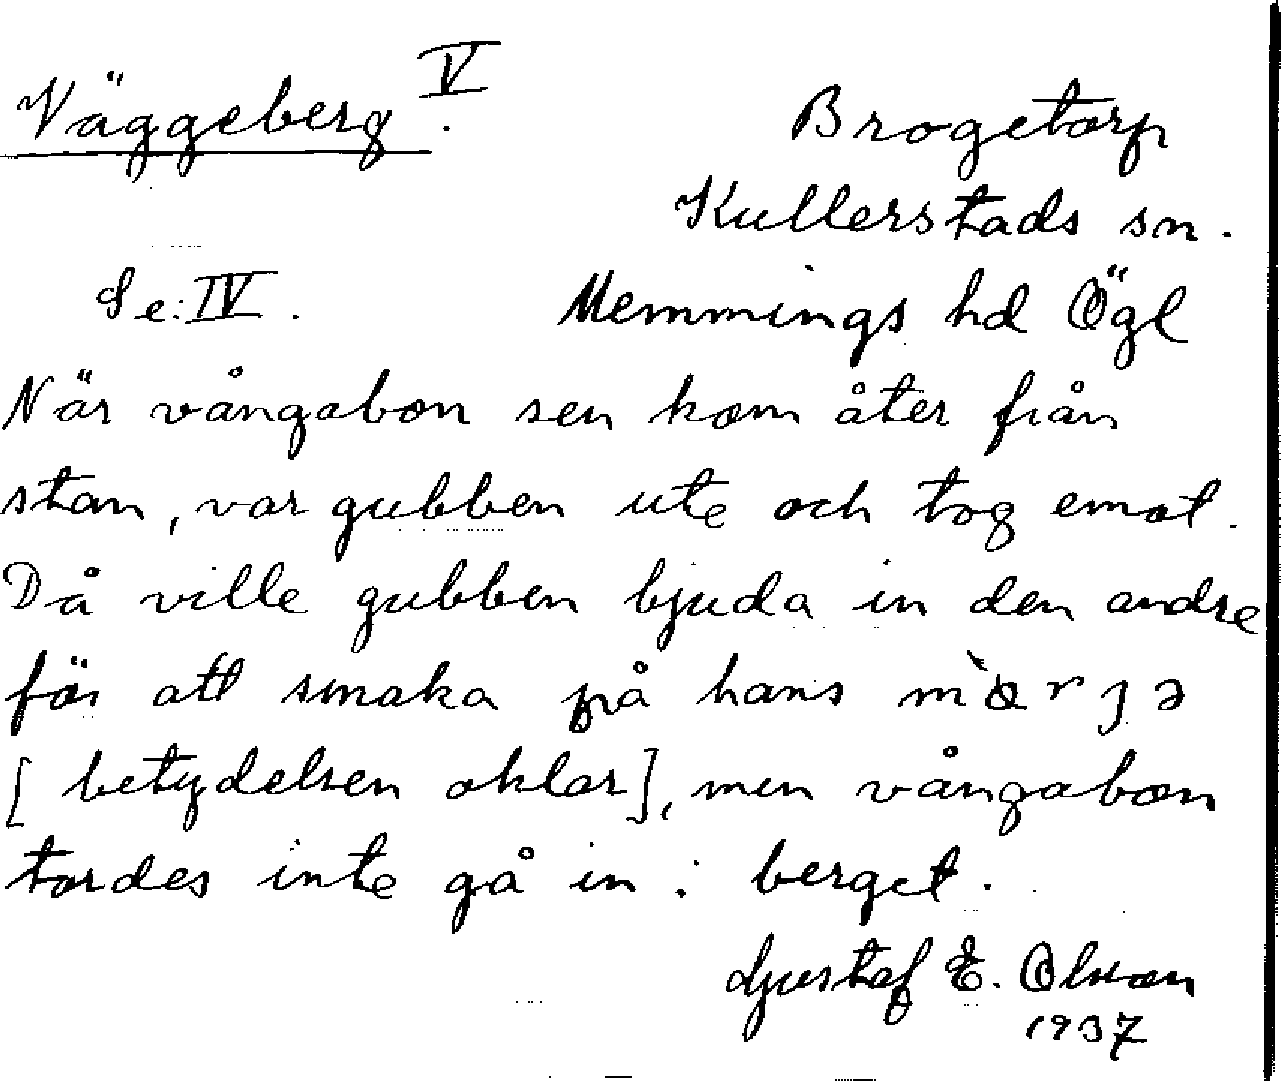 Väggeberg V.
Brogetorp
Kullerstads sn.
Se: IV.
Memmings hd Ögl
När vångabon sen kom åter från
stan, var gubben ute och tog emot.
Då ville gubben bjuda in den andre
för att smaka på hans
[betydelsen oklar], men vångabon
tordes inte gå in i berget.
Gustaf E. Olsson
1937